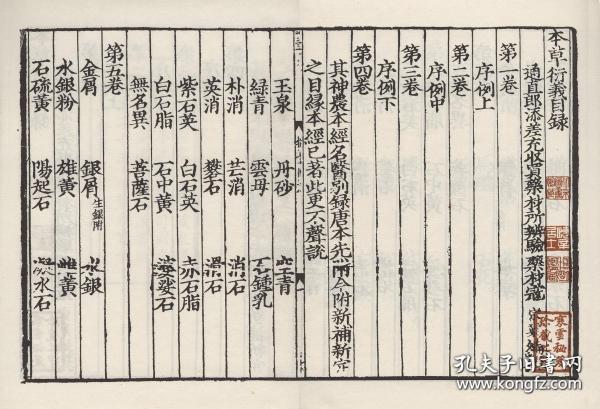 本草衍義目録
通直郎添差充收買藥材所辨驗藥材寇宗奭編撰
第一卷
序例上
第二卷
序例中
第三卷
序例下
第四卷
其神農本經名醫别録唐本先附今附新補新定
之目緣本經已著此更不聲説
玉泉 丹砂 空青
緑青 雲母 石鍾乳
朴消 芒消 消石
英消 礬石 滑石
紫石英 白石英 赤石脂
白石脂 石中黄 婆娑石
無名異 菩薩石
第五卷
金屑 銀屑生銀附 水銀
水銀粉 雄黄 雌黄
石硫黄 陽起石 凝水石
孔夫子旧书网
www.kongfz.com